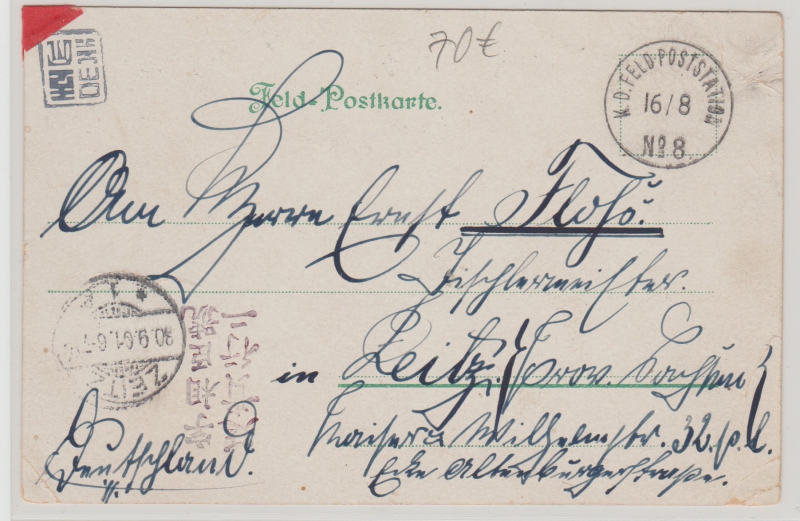 70 €
Feld-Postkarte.
K.D. FELD-POSTSTATION
16/8
No 8.
An Herrn Ernst Flohs.
Tischlermeister.
in Zeitz. (Prov. Sachsen)
Kaiser Wilhelmstr. 32. p. l.
Ecke Altenburgerstraße.
Deutschland.
ZEITZ
30.9.01.6-7